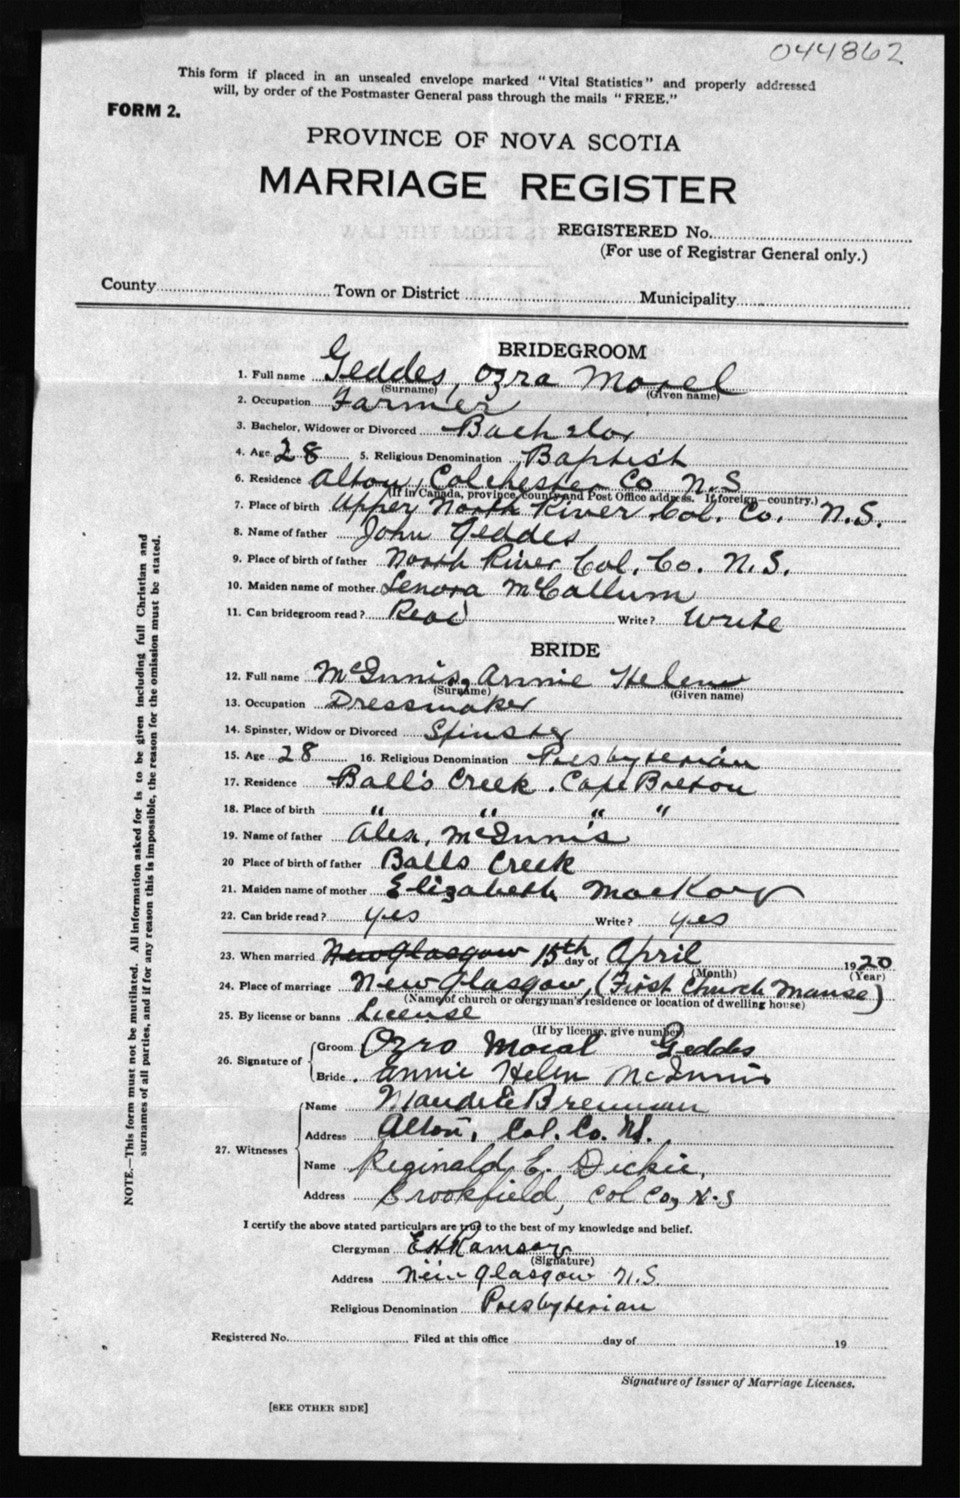 044862
This form if placed in an unsealed envelope marked "Vital Statistics" and properly addressed
will, by order of the Postmaster General pass through the mails "FREE."
FORM 2.
PROVINCE OF NOVA SCOTIA
MARRIAGE REGISTER
REGISTERED No.
(For use of Registrar General only.)
County Town or District Municipality
BRIDEGROOM
1. Full name Geddes, Ozra Morel
(Surname) (Given name)
2. Occupation Farmer
3. Bachelor, Widower or Divorced Bachelor
4. Age 28 5. Religious Denomination Baptist
6. Residence Alton, Colchester Co N.S
(If in Canada, province, county and Post Office address. If foreign—country.)
7. Place of birth Upper North River Col. Co. N.S.
8. Name of father John Geddes
9. Place of birth of father North River Col. Co. N.S.
10. Maiden name of mother Lenora McCallum
11. Can bridegroom read? Read Write? Write
BRIDE
12. Full name McInnis, Annie Helen
(Surname) (Given name)
13. Occupation Dressmaker
14. Spinster, Widow or Divorced Spinster
15. Age 28 16. Religious Denomination Presbyterian
17. Residence Ball's Creek. Cape Breton
18. Place of birth " " " "
19. Name of father Alex. McInnis
20 Place of birth of father Balls Creek
21. Maiden name of mother Elizabeth MacKay
22. Can bride read? yes Write? yes
23. When married New Glasgow 15th day of April 1920
(Month) (Year)
24. Place of marriage New Glasgow, (First Church Manse)
(Name of church or clergyman's residence or location of dwelling house)
25. By license or banns License
(If by license, give number)
26. Signature of Groom Ozro Moral Geddes
Bride. Annie Helen McInnis
27. Witnesses Name Maude E Brennan
Address Alton, Col. Co. NS.
Name Reginald E. Dickie,
Address Brookfield, Col Co, N.S
I certify the above stated particulars are true to the best of my knowledge and belief.
Clergyman E H Ramsay
(Signature)
Address New Glasgow N.S.
Religious Denomination Presbyterian
Registered No. Filed at this office day of 19
Signature of Issuer of Marriage Licenses.
[SEE OTHER SIDE]
NOTE.—This form must not be mutilated. All information asked for is to be given including full Christian and
surnames of all parties, and if for any reason this is impossible, the reason for the omission must be stated.